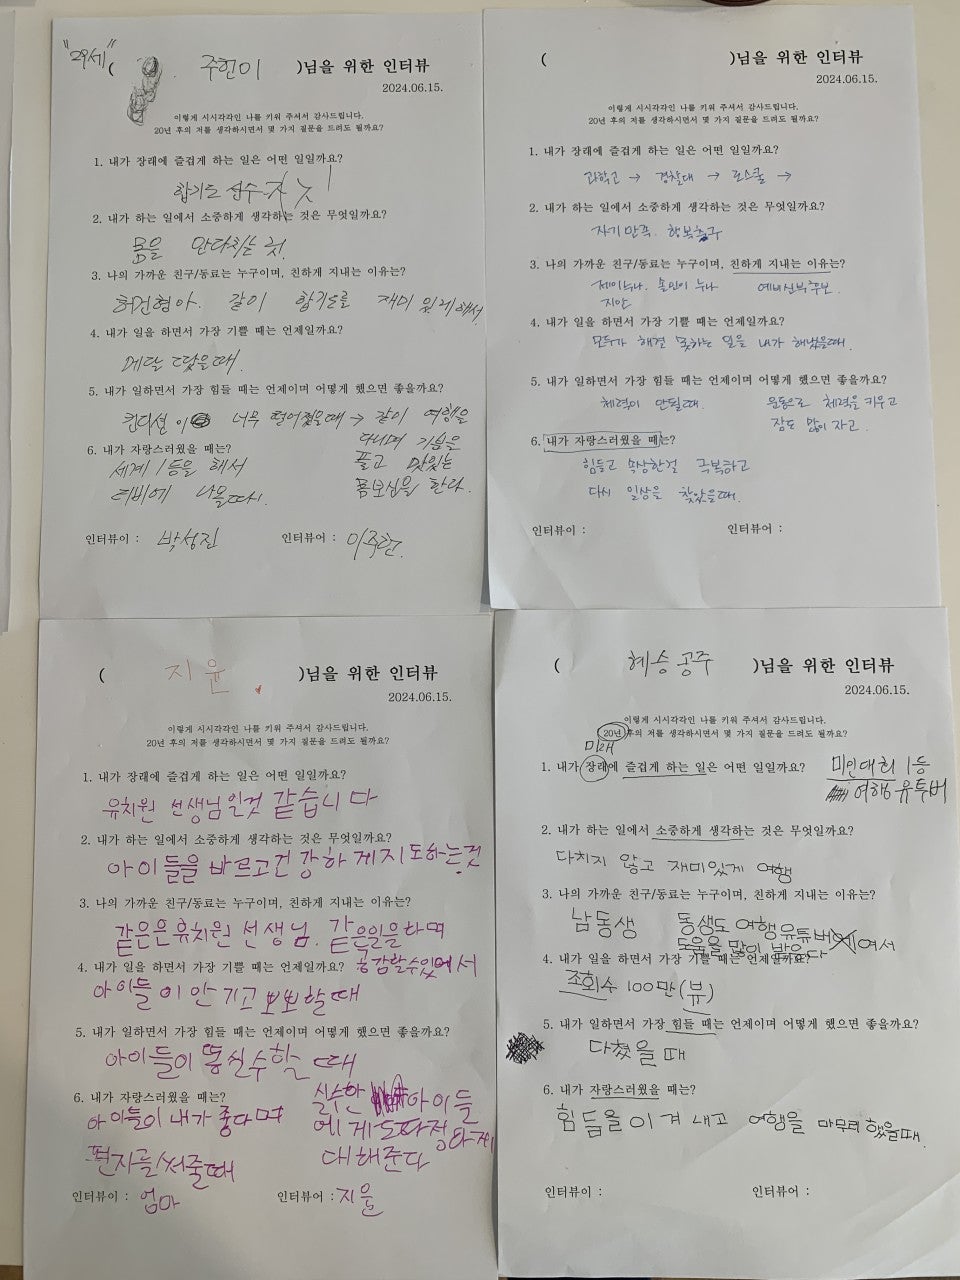 "29세"
( 주헌이 )님을 위한 인터뷰
2024.06.15.
이렇게 시시각각인 나를 키워 주셔서 감사드립니다.
20년 후의 저를 생각하시면서 몇 가지 질문을 드려도 될까요?
1. 내가 장래에 즐겁게 하는 일은 어떤 일일까요?
합기도 선수
2. 내가 하는 일에서 소중하게 생각하는 것은 무엇일까요?
몸을 안다치는 것
3. 나의 가까운 친구/동료는 누구이며, 친하게 지내는 이유는?
허건형아. 같이 합기도를 재미있게해서
4. 내가 일을 하면서 가장 기쁠 때는 언제일까요?
메달 땄을때.
5. 내가 일하면서 가장 힘들 때는 언제이며 어떻게 했으면 좋을까요?
컨디션이 너무 떨어졌을때 → 같이 여행을
다니며 기분을
풀고 맛있는
몸보신을 한다.
6. 내가 자랑스러웠을 때는?
세계 1등을 해서
티비에 나올때
인터뷰이 : 박성진 인터뷰어 : 이주헌
( )님을 위한 인터뷰
2024.06.15.
이렇게 시시각각인 나를 키워 주셔서 감사드립니다.
20년 후의 저를 생각하시면서 몇 가지 질문을 드려도 될까요?
1. 내가 장래에 즐겁게 하는 일은 어떤 일일까요?
과학고 → 경찰대 → 로스쿨 →
2. 내가 하는 일에서 소중하게 생각하는 것은 무엇일까요?
자기만족. 행복추구
3. 나의 가까운 친구/동료는 누구이며, 친하게 지내는 이유는?
제이누나. 누나 예비신부후보.
지안
4. 내가 일을 하면서 가장 기쁠 때는 언제일까요?
모두가 해결 못하는 일을 내가 해냈을때.
5. 내가 일하면서 가장 힘들 때는 언제이며 어떻게 했으면 좋을까요?
체력이 안될때. 운동으로 체력을 키우고
잠도 많이 자고.
6. 내가 자랑스러웠을 때는?
힘들고 속상한걸 극복하고
다시 일상을 찾았을때.
인터뷰이 : 인터뷰어 :
( 지윤 )님을 위한 인터뷰
2024.06.15.
이렇게 시시각각인 나를 키워 주셔서 감사드립니다.
20년 후의 저를 생각하시면서 몇 가지 질문을 드려도 될까요?
1. 내가 장래에 즐겁게 하는 일은 어떤 일일까요?
유치원 선생님일것 같습니다
2. 내가 하는 일에서 소중하게 생각하는 것은 무엇일까요?
아이들을 바르고건강하게지도하는것
3. 나의 가까운 친구/동료는 누구이며, 친하게 지내는 이유는?
같은 유치원 선생님. 같은일을하며
공감할수있어서
4. 내가 일을 하면서 가장 기쁠 때는 언제일까요?
아이들이 안기고 뽀뽀할때
5. 내가 일하면서 가장 힘들 때는 언제이며 어떻게 했으면 좋을까요?
아이들이 똥실수할 때
실수한 아이들
에게도다정하게
대해준다
6. 내가 자랑스러웠을 때는?
아이들이 내가 좋다며
편지를써줄때
인터뷰이 : 엄마 인터뷰어 : 지윤
( 혜승공주 )님을 위한 인터뷰
2024.06.15.
이렇게 시시각각인 나를 키워 주셔서 감사드립니다.
20년 후의 저를 생각하시면서 몇 가지 질문을 드려도 될까요?
미래
1. 내가 장래에 즐겁게 하는 일은 어떤 일일까요?
미인대회 1등
여행유투버
2. 내가 하는 일에서 소중하게 생각하는 것은 무엇일까요?
다치지 않고 재미있게 여행
3. 나의 가까운 친구/동료는 누구이며, 친하게 지내는 이유는?
남동생 동생도 여행유튜버여서
도움을 많이 받는다
4. 내가 일을 하면서 가장 기쁠 때는 언제일까요?
조회수 100만(뷰)
5. 내가 일하면서 가장 힘들 때는 언제이며 어떻게 했으면 좋을까요?
다쳤을때
6. 내가 자랑스러웠을 때는?
힘듦을이겨내고 여행을 마무리했을때.
인터뷰이 : 인터뷰어 :